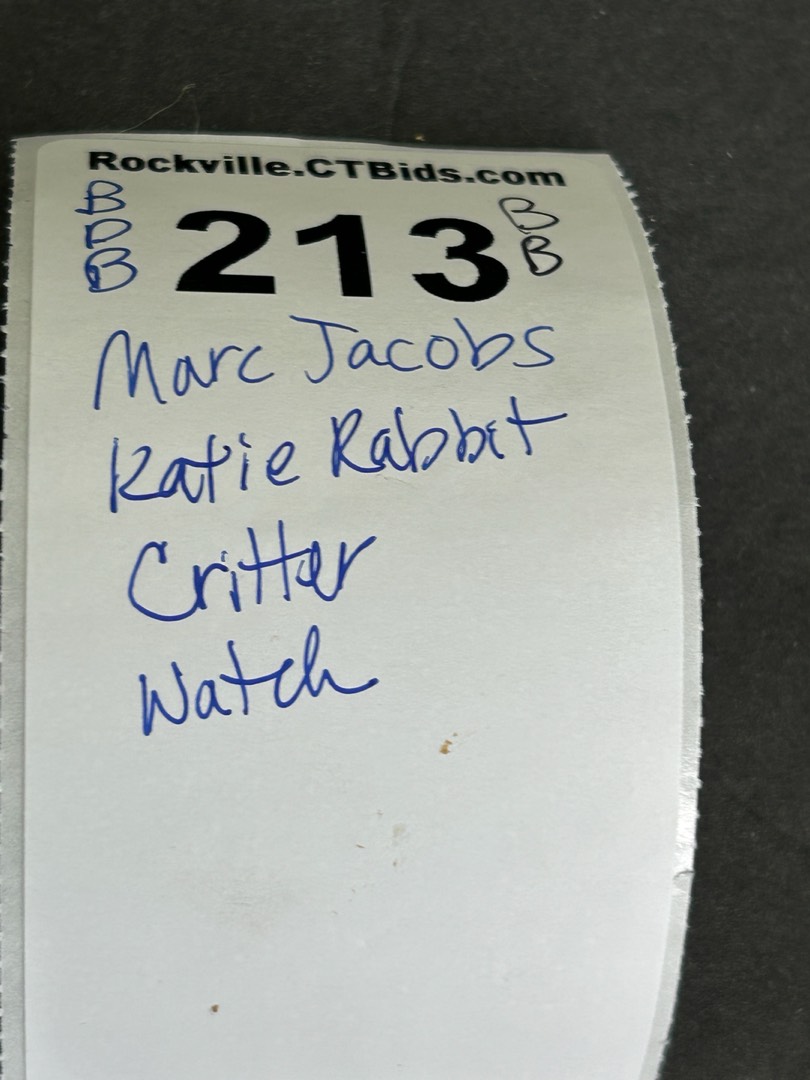 Rockville.CTBids.com
B
D
B
213
B
B
Marc Jacobs
Katie Rabbit
Critter
Watch